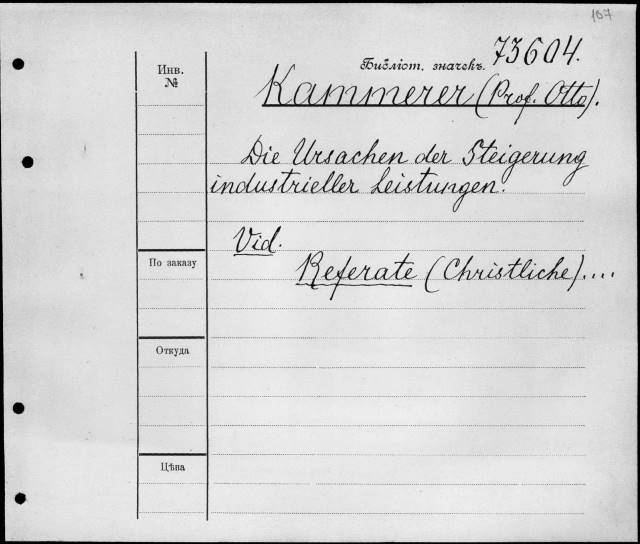 107
Библіот. значекъ. 73604.
Инв. №
Kammerer (Prof. Otto).
Die Ursachen der Steigerung
industrieller Leistungen.
Vid.
По заказу
Referate (Christliche)....
Откуда
Цѣна